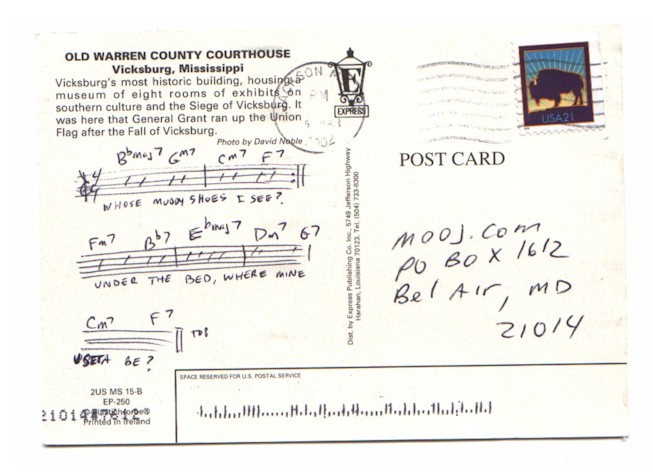 OLD WARREN COUNTY COURTHOUSE
Vicksburg, Mississippi
Vicksburg's most historic building, housing a
museum of eight rooms of exhibits on
southern culture and the Siege of Vicksburg. It
was here that General Grant ran up the Union
Flag after the Fall of Vicksburg.
Photo by David Noble
SON
PM
2002
E
EXPRESS
USA21
POST CARD
Dist. by Express Publishing Co. Inc., 5749 Jefferson Highway
Harahan, Louisiana 70123. Tel. (504) 733-8300
Bbmaj7 Gm7 Cm7 F7
4
4
WHOSE MUDDY SHOES I SEE?
Fm7 Bb7 Ebmaj7 Dm7 G7
UNDER THE BED, WHERE MINE
Cm7 F7
TOP
USETA BE?
MOOJ.COM
PO BOX 1612
Bel Air, MD
21014
SPACE RESERVED FOR U.S. POSTAL SERVICE
2US MS 15-B
EP-250
Printed in Ireland